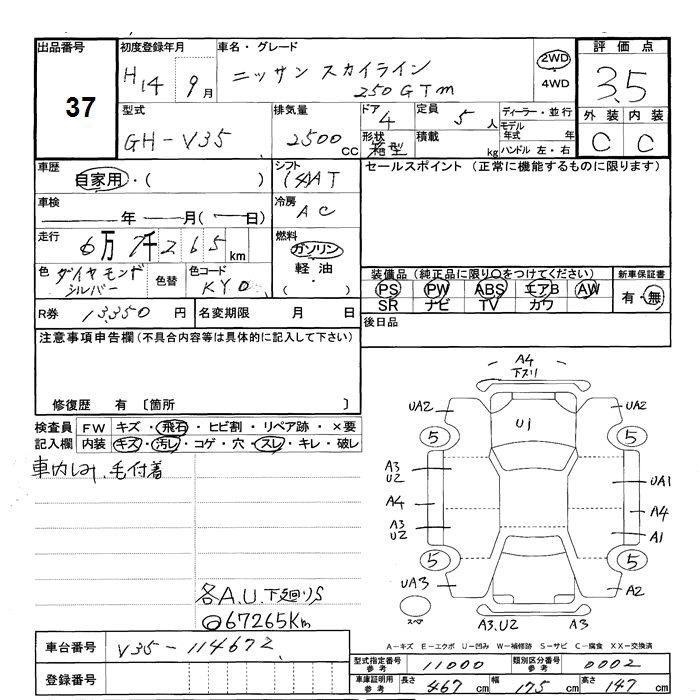 出品番号 初度登録年月 車名・グレード 評価点
37 H14 9月 ニッサン スカイライン 2WD 3.5
250GTm 4WD
型式 排気量 ドア 定員 ディーラー・並行 外装 内装
GH-V35 2500cc 4 5人 モデル年式 年 C C
形状 箱型 積載 kg ハンドル 左・右
車歴 シフト セールスポイント (正常に機能するものに限ります)
自家用・( ) (4)AT
車検 冷房
年 月( 日) AC
走行 燃料
6万7千265km ガソリン
軽油
( ・ )
色 ダイヤモンドシルバー 色替 色コード KY0
装備品(純正品に限り○をつけてください) 新車保証書
PS PW ABS エアB AW 有・無
SR ナビ TV カワ
R券 13,350円 名変期限 月 日 後日品
注意事項申告欄(不具合内容等は具体的に記入して下さい)
修復歴 有 〔箇所 〕
検査員 FW キズ・飛石・ヒビ割・リペア跡・×要
記入欄 内装 キズ・汚レ・コゲ・穴・スレ・キレ・破レ
車内しみ、毛付着
各A.U.下廻りS
◎67265Km
A4
下スリ
UA2 U1 UA2
5 5
A3 U2 UA1
A4 A4
A3 U2 A1
5 5
UA3 A2
スペア A3.U2 A3
A-キズ E-エクボ U-凹み W-補修跡 S-サビ C-腐食 XX-交換済
車台番号 V35-114672
登録番号
型式指定番号 参考 11000 類別区分番号 参考 0002
車庫証明用 参考 長さ 467cm 幅 175cm 高さ 147cm